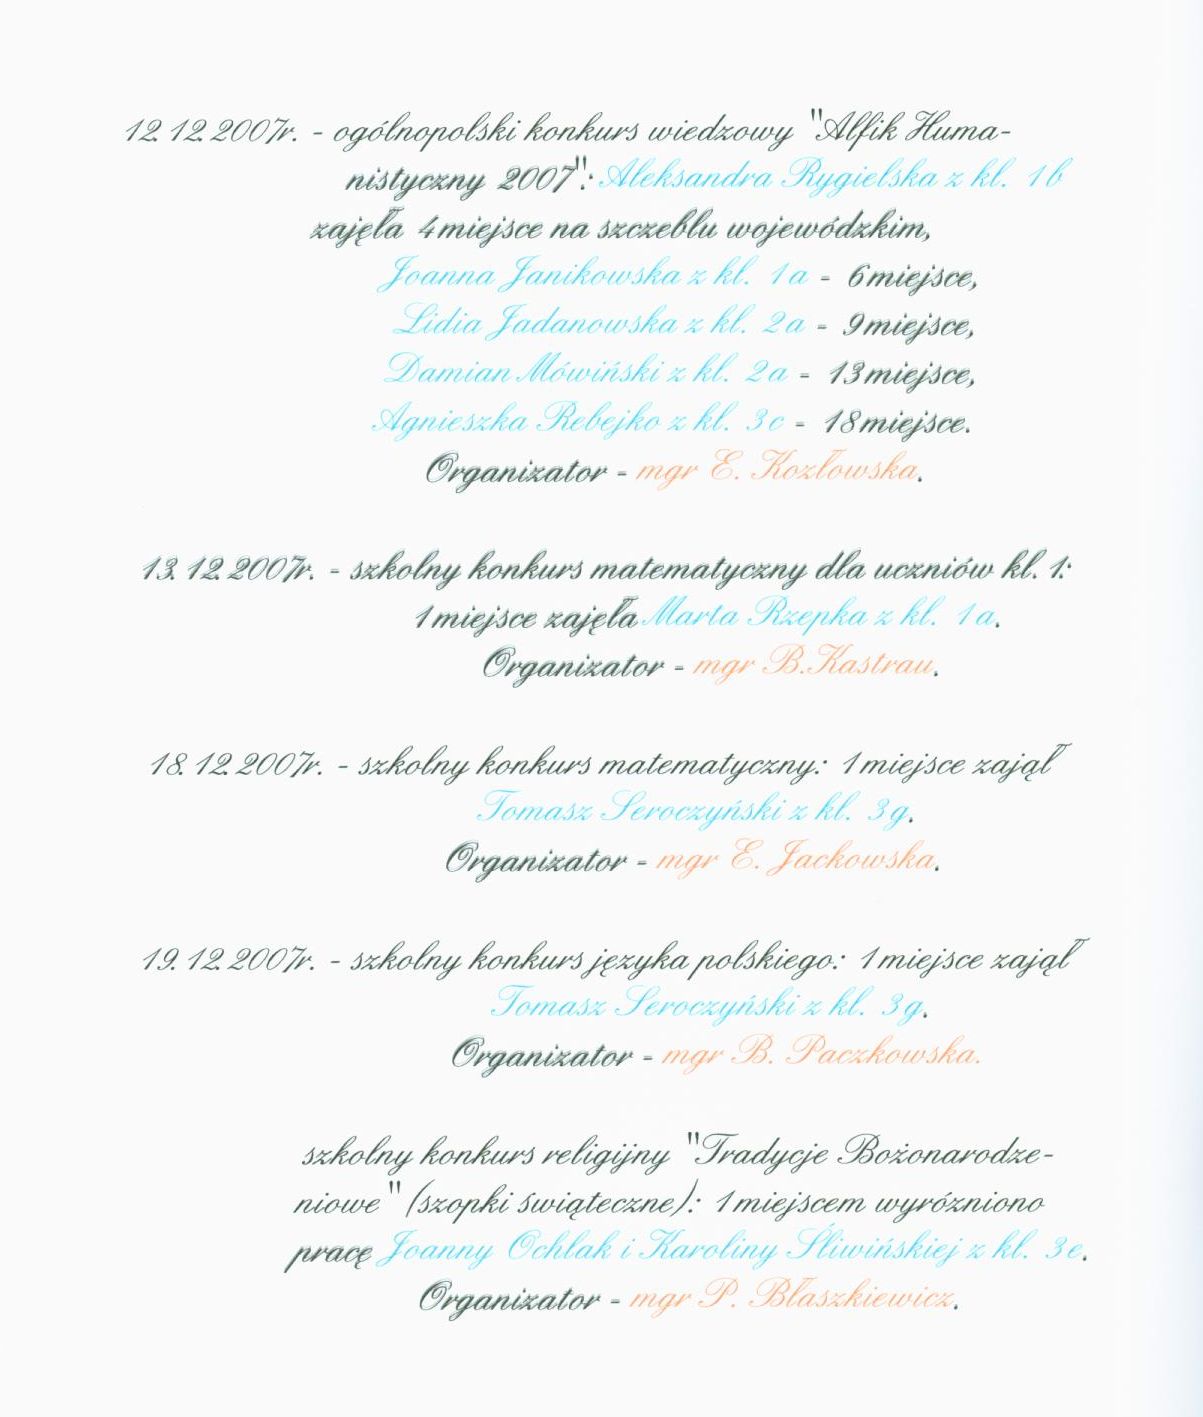 12.12.2007r. - ogólnopolski konkurs wiedzowy "Alfik Huma-
nistyczny 2007": Aleksandra Rygielska z kl. 1b
zajęła 4 miejsce na szczeblu wojewódzkim,
Joanna Janikowska z kl. 1a - 6 miejsce,
Lidia Jadanowska z kl. 2a - 9 miejsce,
Damian Mówiński z kl. 2a - 13 miejsce,
Agnieszka Rebejko z kl. 3c - 18 miejsce.
Organizator - mgr E. Kozłowska.
13.12.2007r. - szkolny konkurs matematyczny dla uczniów kl. 1:
1 miejsce zajęła Marta Rzepka z kl. 1a.
Organizator - mgr B. Kastrau.
18.12.2007r. - szkolny konkurs matematyczny: 1 miejsce zajął
Tomasz Seroczyński z kl. 3g.
Organizator - mgr E. Jackowska.
19.12.2007r. - szkolny konkurs języka polskiego: 1 miejsce zajął
Tomasz Seroczyński z kl. 3g.
Organizator - mgr B. Paczkowska.
szkolny konkurs religijny "Tradycje Bożonarodze-
niowe" (szopki świąteczne): 1 miejscem wyróżniono
pracę Joanny Ochlak i Karoliny Śliwińskiej z kl. 3e.
Organizator - mgr P. Błaszkiewicz.